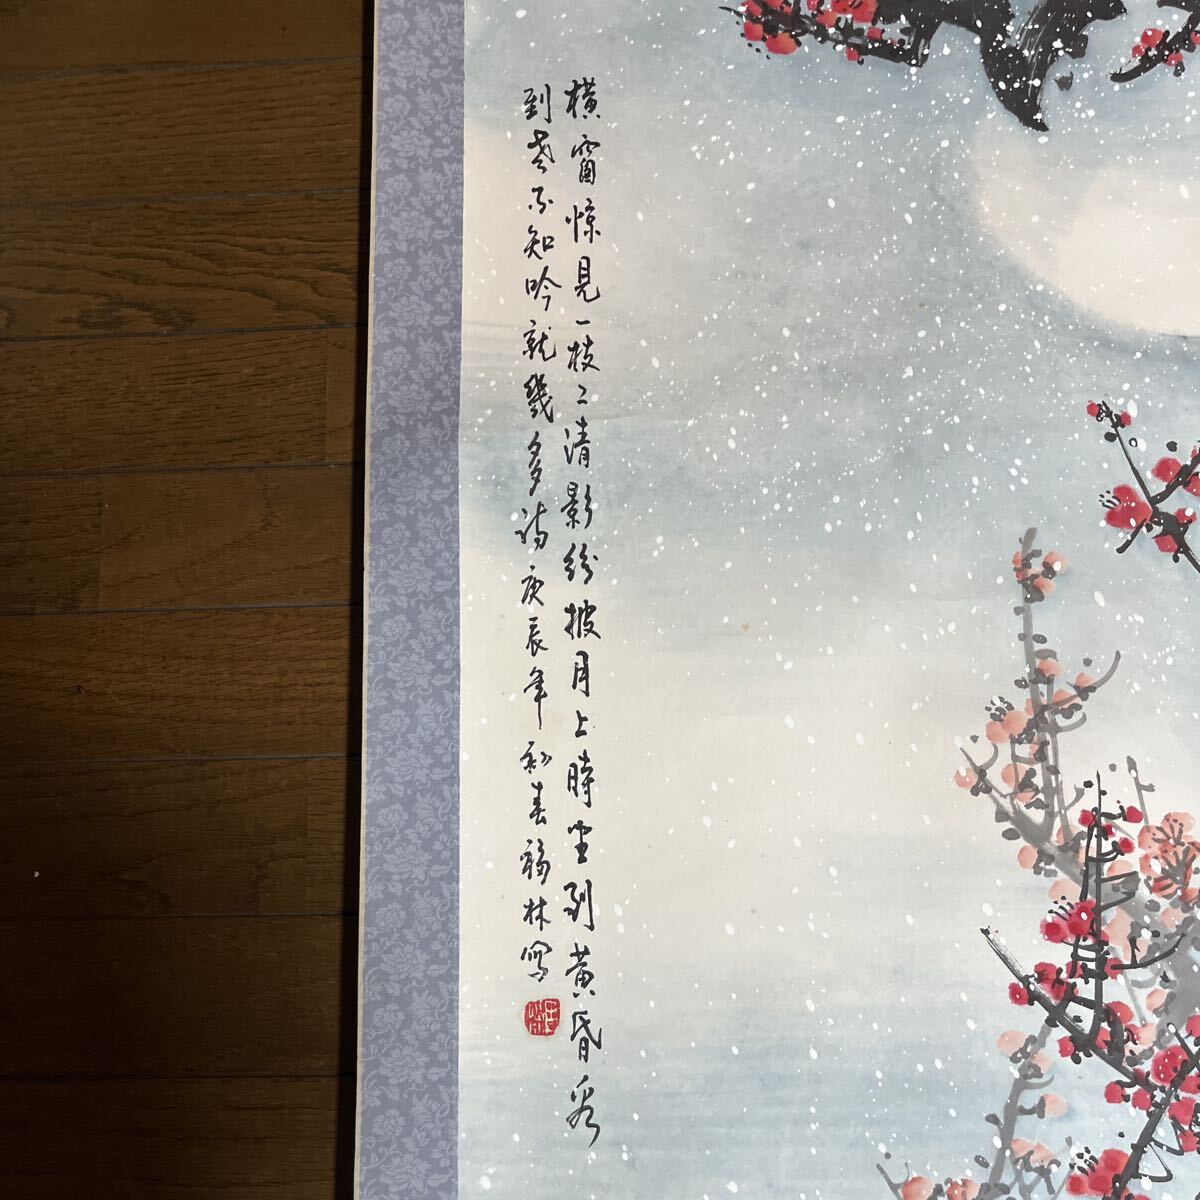 横窗惊見一枝〻清影紛披月上時坐到黄昏看
到老不知吟就幾多詩庚辰年初春福林寫